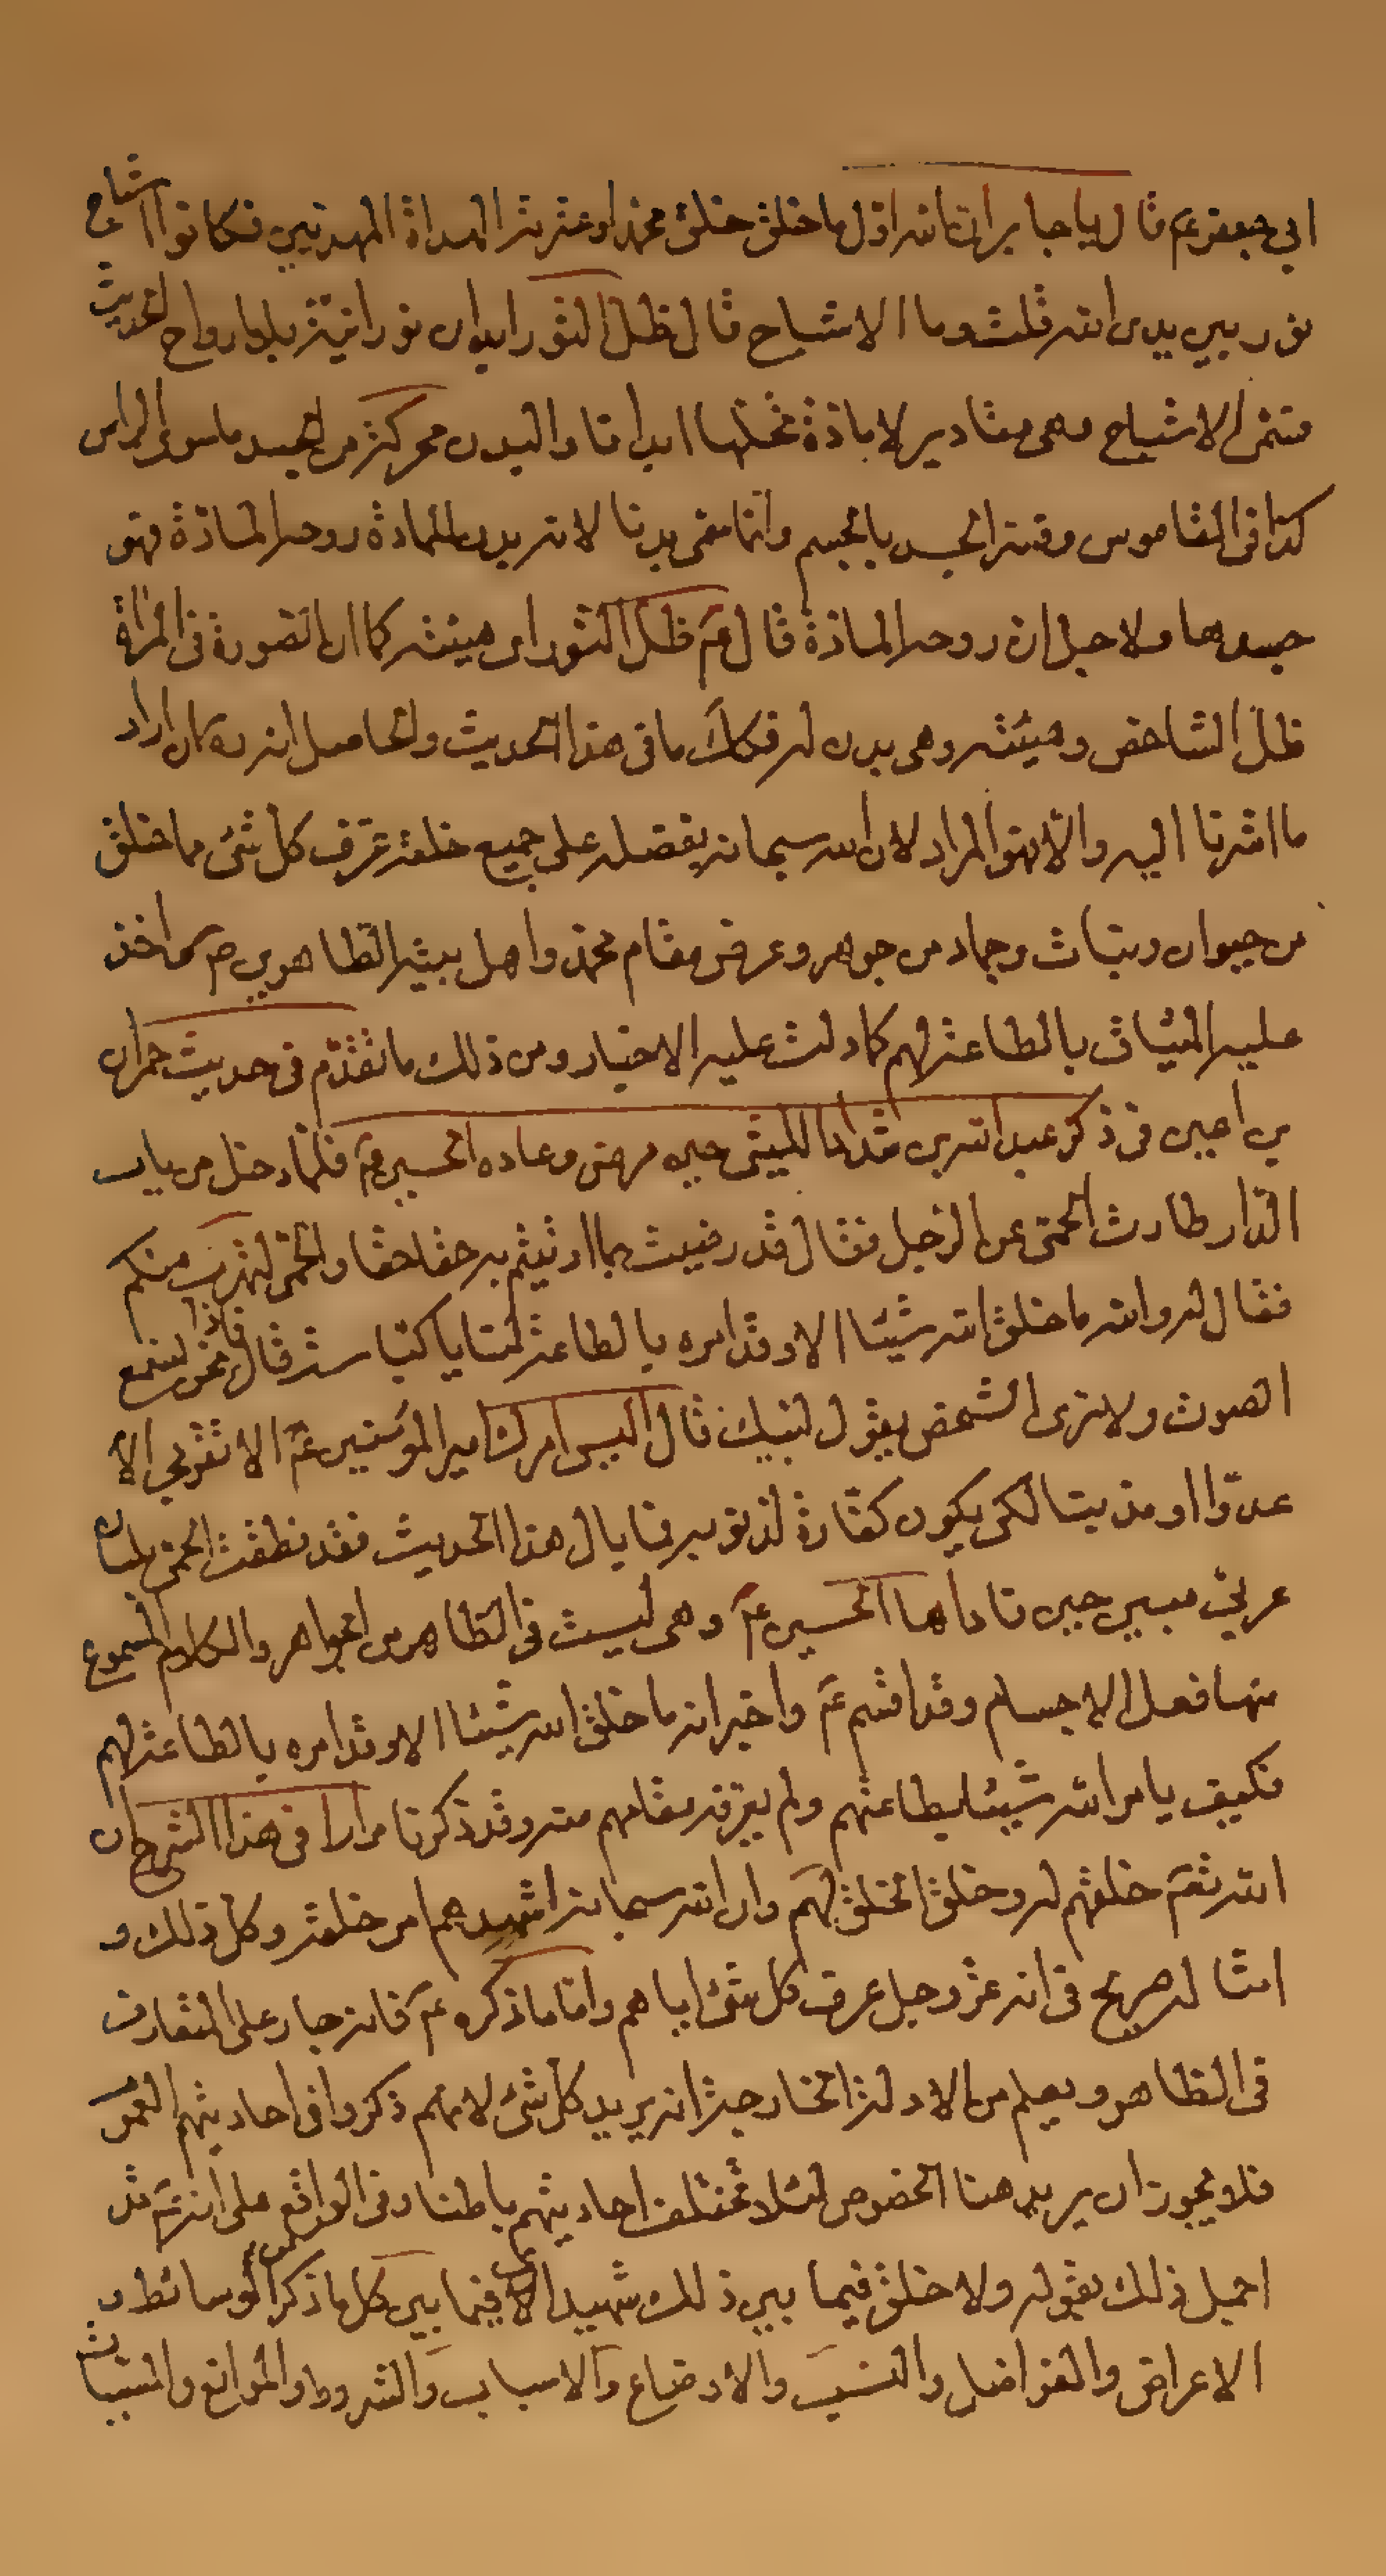 ابي جعفر عم قال يا جابر ان الله اول ما خلق خلق محمدا وعترته الهداة المهديين فكانوا اشباح
نور بين يدي الله قلت وما الاشباح قال ظل النور ابدان نورانية بلا ارواح الحديث
فسمى الاشباح وهى مقادير لا مادة تحلها ابدانا والبدن محركة من الجسد ما سوى الراس
كذا في القاموس وفسر الجسد بالجسم وانما سمى بدنا لانه بدن للمادة روحه المادة فهو
جسدها ولاجل ان روحه المادة قال عم ظل النور اى هيئته كما ان الصورة في المراة
ظل الشاخص وهيئته وهى بدن له فكك ما في هذا الحديث والحاصل انه ره كان اراد
ما اشرنا اليه والا فهو المراد لان الله سبحانه بفضله على جميع خلقه عرف كل شئ مما خلق
من حيوان ونبات وجماد من جوهر وعرض مقام محمد واهل بيته الطاهرين ص كما اخذ
عليه الميثاق بالطاعة لهم كما دلت عليه الاخبار ومن ذلك ما تقدم في حديث حمران
بن اعين في ذكر عبد الله بن شداد الليثى حين مرض وعاده الحسين عم فلما دخل من باب
الدار طارت الحمى عن الرجل فقال قد رضيت بما اوتيتم به حقا حقا والحمى لتهرب منكم
فقال له والله ما خلق الله شيئا الا وقد امره بالطاعة لنا يا كباسة قال فاذا نحن نسمع
الصوت ولا نرى الشخص يقول لبيك قال اليس امرك امير المؤمنين عم الا تقربى الا
عدوا او مذنبا لكى يكون كفارة لذنوبه فما بال هذا الحديث فقد نطقت الحمى بلسان
عربى مبين حين ناداها الحسين عم وهى ليست في الظاهر من الجواهر والكلام المسموع
منها فعل الاجسام وقد اقسم عم واخبر انه ما خلق الله شيئا الا وقد امره بالطاعة لهم
فكيف يامر الله شيئا بطاعتهم ولم يعرفه مقامهم منه وقد ذكرنا مرارا في هذا الشرح ان
الله تعم خلقهم له وخلق الخلق لهم وان الله سبحانه اشهدهم امر خلقه وكل ذلك و
امثاله صريح في انه عز وجل عرف كل شئ اياهم واما ما ذكره عم فانه جار على المتعارف
في الظاهر ويعلم من الادلة الخارجية انه يريد كل شئ لانهم ذكروا في احاديثهم العموم
فلا يجوز ان يريد هنا الخصوص لئلا تختلف احاديثهم باطنا وفي الواقع على انه عم قد
اجمل ذلك بقوله ولا خلق فيما بين ذلك شهيد الا فيما بين كل ما ذكر الوسائط و
الاعراض والفواضل والنسب والاوضاع والاسباب والشروط والموانع والمسببات